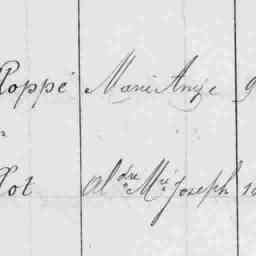 Poppé Marie Ange 9
"
Hot Al.dre M.ie Joseph 10